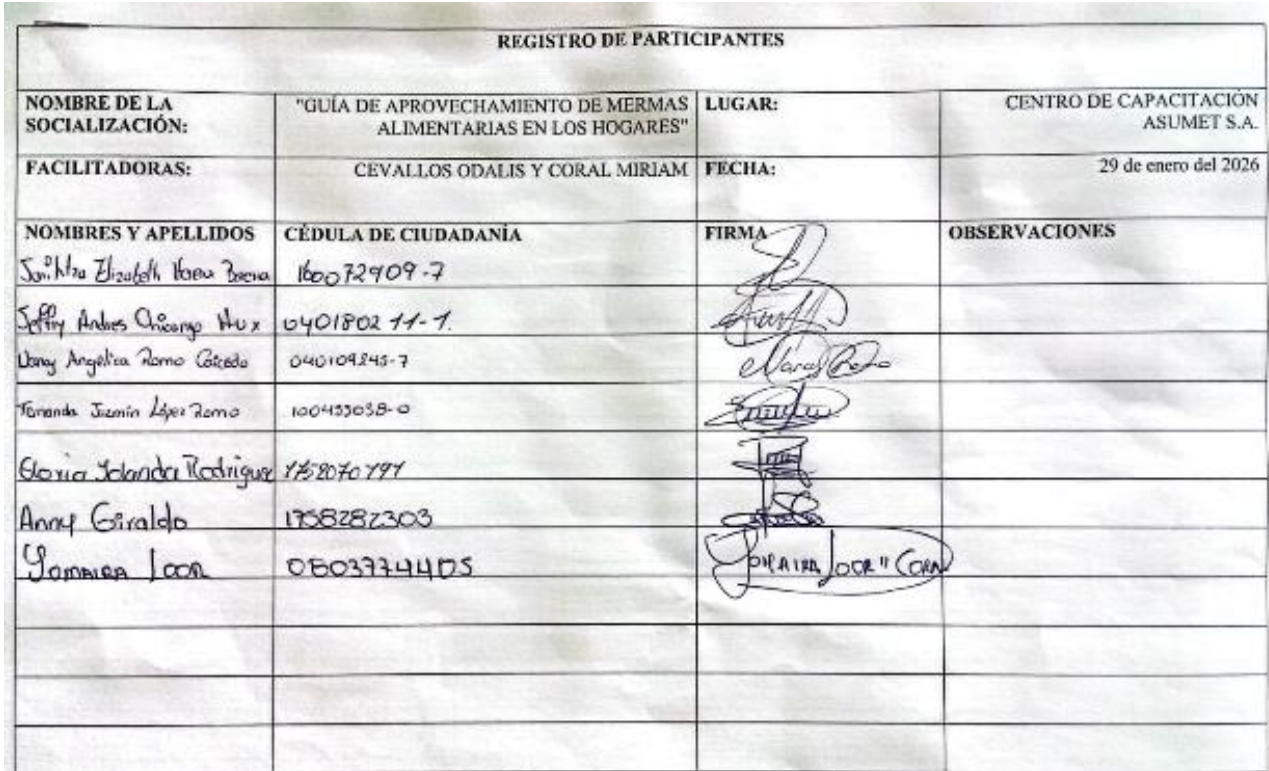 REGISTRO DE PARTICIPANTES
NOMBRE DE LA SOCIALIZACIÓN: "GUÍA DE APROVECHAMIENTO DE MERMAS ALIMENTARIAS EN LOS HOGARES" LUGAR: CENTRO DE CAPACITACIÓN ASUMET S.A.
FACILITADORAS: CEVALLOS ODALIS Y CORAL MIRIAM FECHA: 29 de enero del 2026
NOMBRES Y APELLIDOS CÉDULA DE CIUDADANÍA FIRMA OBSERVACIONES
Elizabeth 160072909-7
Andres 040180211-1.
Angélica Romo Caicedo
Fernanda Jazmín López Romo
Gloria Yolanda Rodriguez
Anny Giraldo 1758282303
Yomaira Loor Yomaira Loor